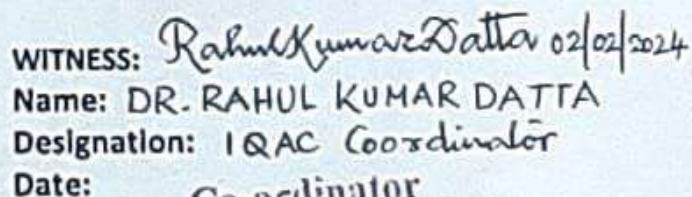 WITNESS: Rahul Kumar Datta 02/02/2024
Name: DR. RAHUL KUMAR DATTA
Designation: IQAC Coordinator
Date:
Co-ordinator